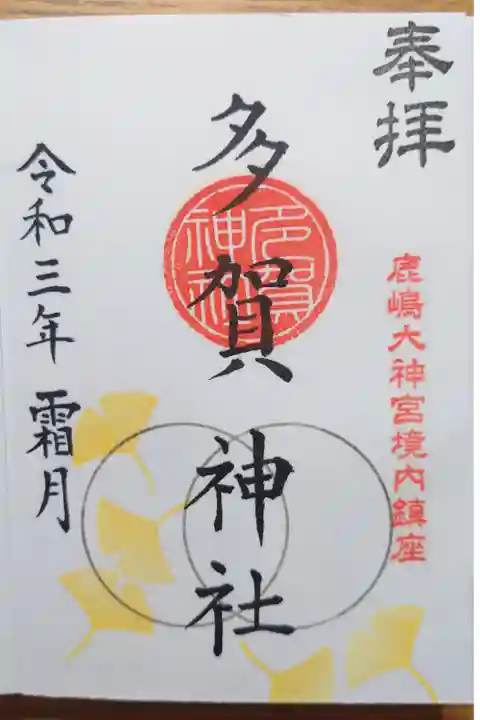 奉拝
鹿嶋大神宮境内鎮座
多賀神社
多賀
神社
令和三年 霜月